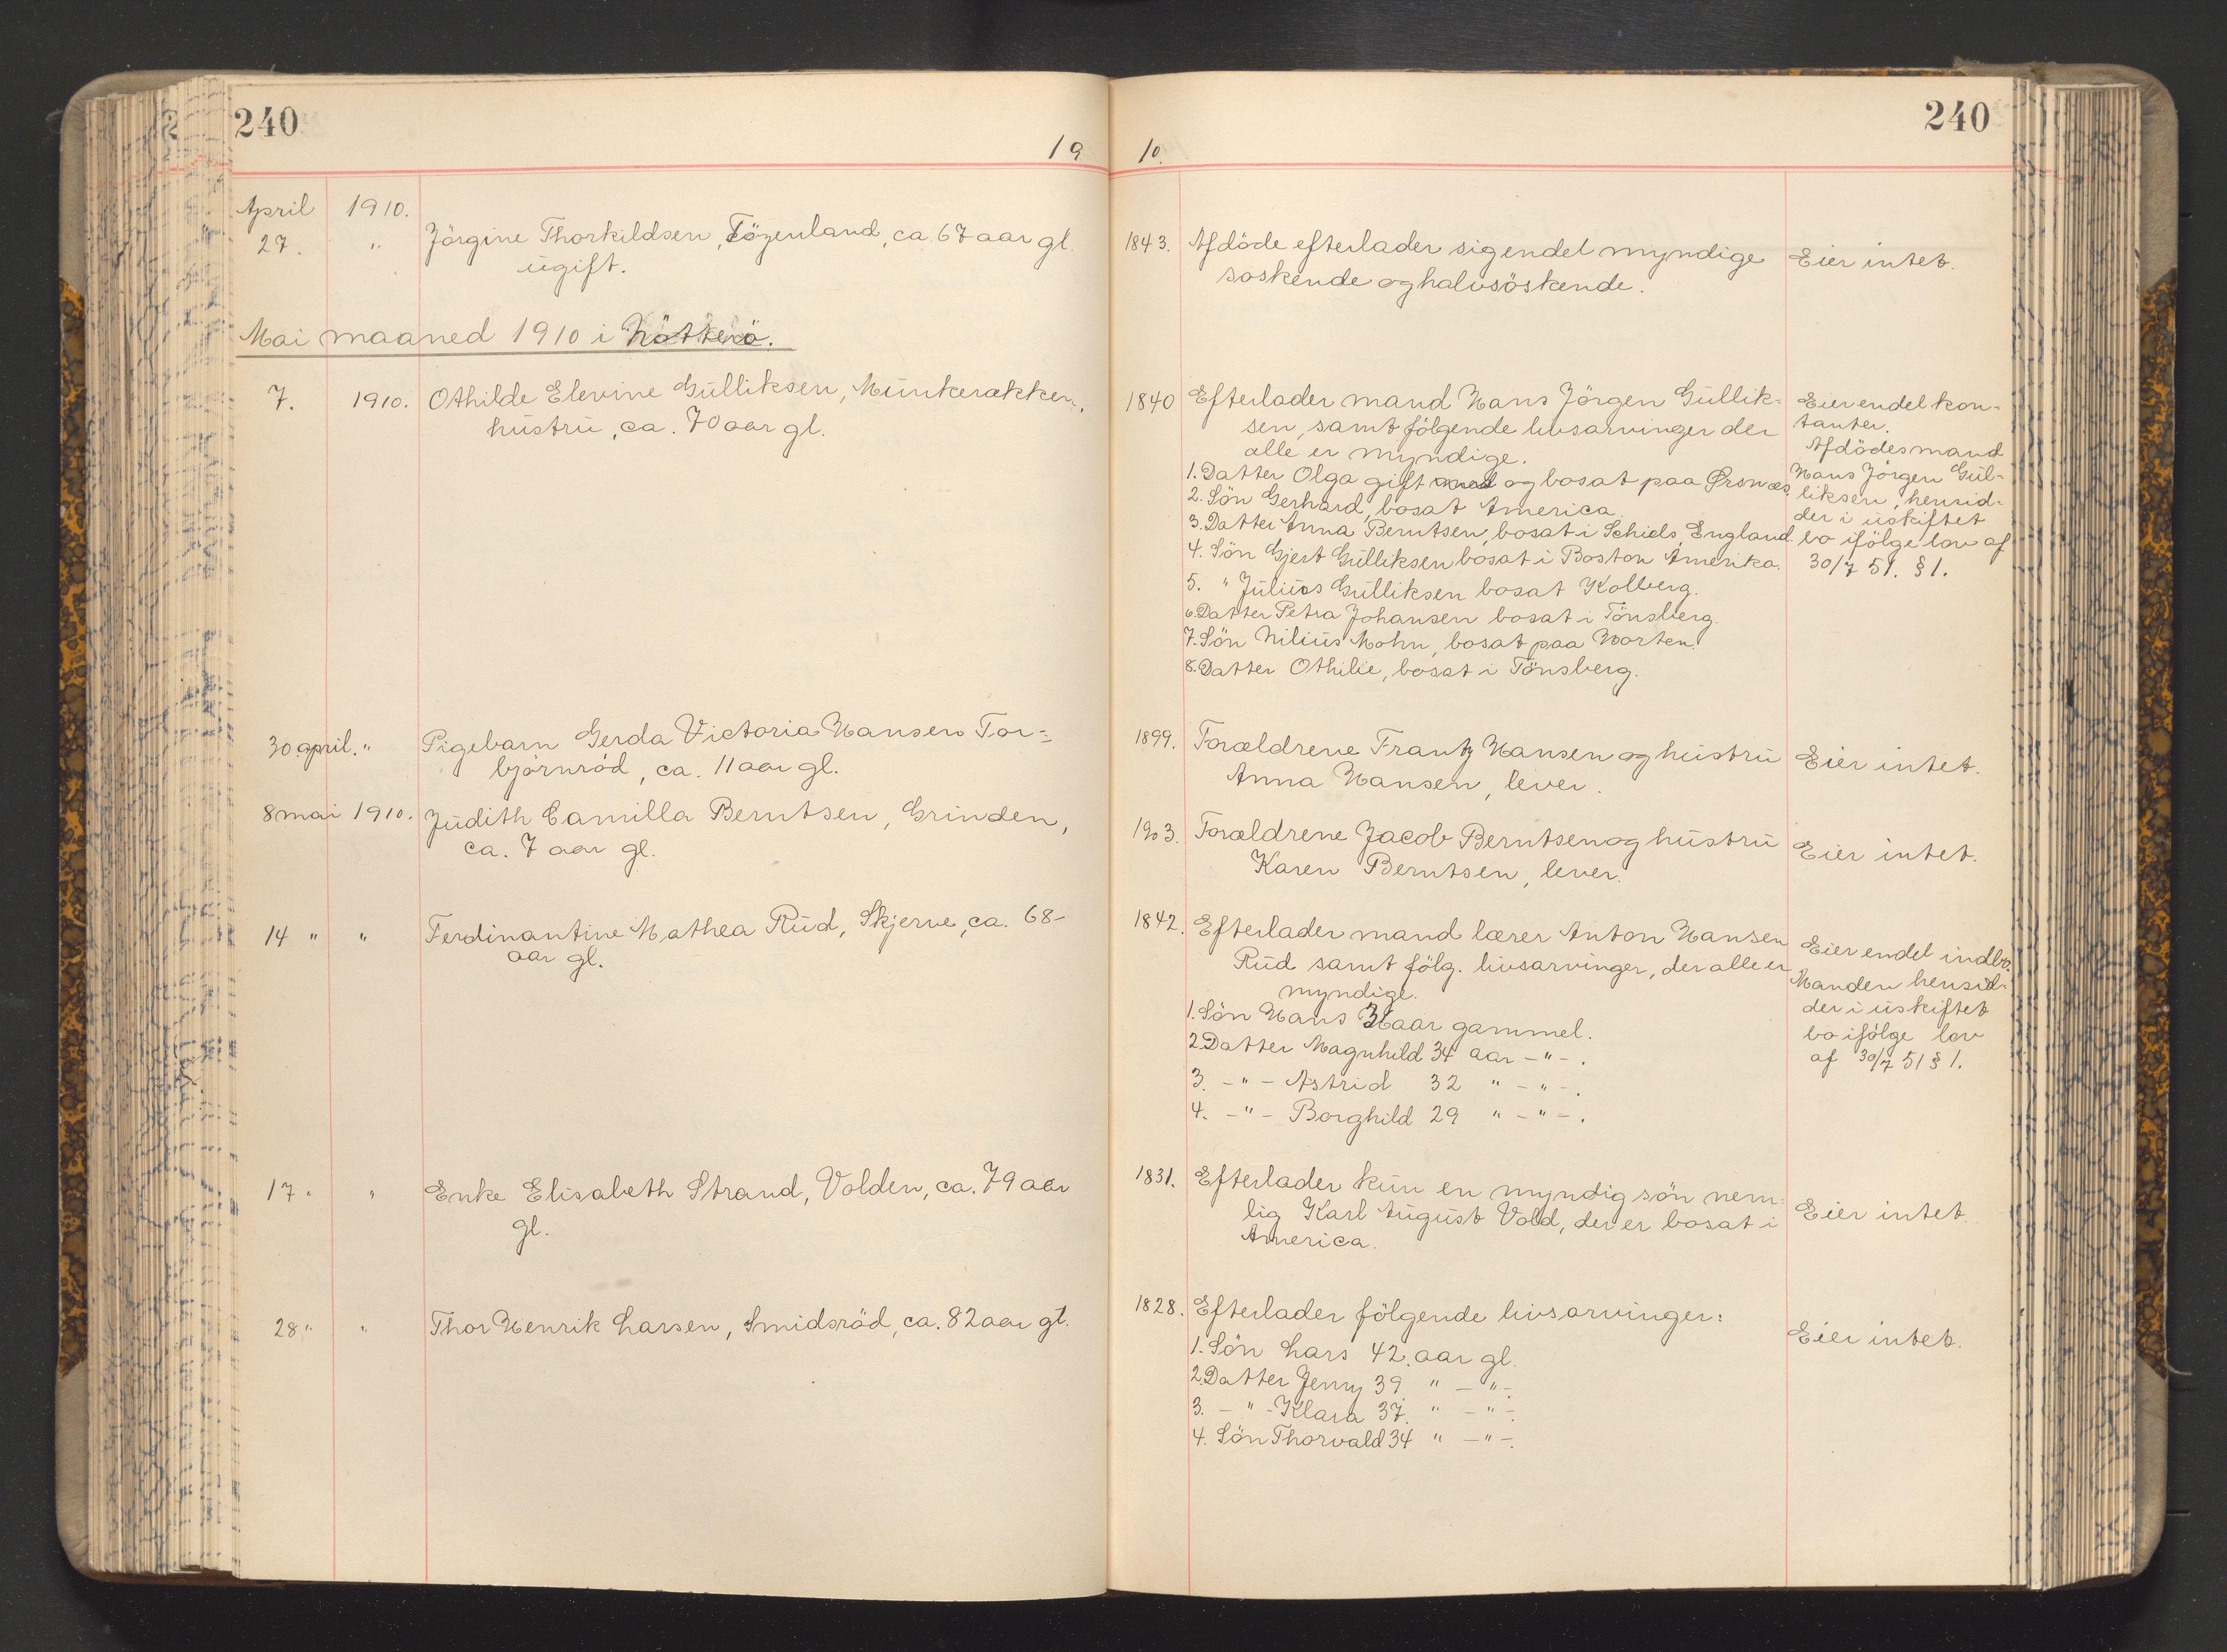 240
240
19 10.
April 1910.
27. " Jörgine Thorkildsen, Tözenland, ca. 67 aar gl.
ugift.
1843. Afdöde efterlader sig endel myndige
soskende og halvsöskende.
Eier intet.
Mai maaned 1910 i Nötterö.
7. 1910. Othilde Elevine Gulliksen, Munkerækken,
hustru, ca. 70 aar gl.
1840 Efterlader mand Hans Jörgen Gullik-
sen, samt fölgende livsarvinger der
alle er myndige.
1. Datter Olga gift med og bosat paa Ørsnæs.
2. Sön Gerhard, bosat America.
3. Datter Anna Berntsen, bosat i Schiels, England.
4. Sön Gjert Gulliksen bosat i Boston Amerika.
5. " Julius Gulliksen bosat Kolberg.
6. Datter Petra Johansen bosat i Tönsberg.
7. Sön Nilius Mohn, bosat paa Horten.
8. Datter Othilie, bosat i Tönsberg.
Eier endel kon-
tanter.
Afdödes mand
Hans Jörgen Gul-
liksen, hensid-
der i uskiftet
bo ifölge lov af
30/7 51. § 1.
30 april. " Pigebarn Gerda Victoria Hansen Tor-
björnröd, ca. 11 aar gl.
1899. Forældrene Frantz Hansen og hustru
Anna Hansen, lever.
Eier intet.
8 mai 1910. Judith Camilla Berntsen, Grinden,
ca. 7 aar gl.
1903. Forældrene Jacob Berntsen og hustru
Karen Berntsen, lever.
Eier intet.
14 " " Ferdinantine Mathea Rud, Skjerve, ca. 68-
aar gl.
1842. Efterlader mand lærer Anton Hansen
Rud samt fölg. livsarvinger, der alle er
myndige.
1. Sön Hans aar gammel.
2. Datter Magnhild 34 aar - " - .
3. - " - Astrid 32 " - " - .
4. - " - Borghild 29 " - " - .
Eier endel indbo.
Manden hensid-
der i uskiftet
bo ifölge lov
af 30/7 51 § 1.
17 " " Enke Elisabeth Strand, Volden, ca. 79 aar
gl.
1831. Efterlader kun en myndig sön nem-
lig Karl August Vold, der er bosat i
America.
Eier intet.
28 " " Thor Henrik Larsen, Smidsröd, ca. 82 aar gl.
1828. Efterlader fölgende livsarvinger:
1. Sön Lars 42. aar gl.
2. Datter Jenny 39. " - " - .
3. - " - Klara 37. " - " - .
4. Sön Thorvald 34 " - " - .
Eier intet.